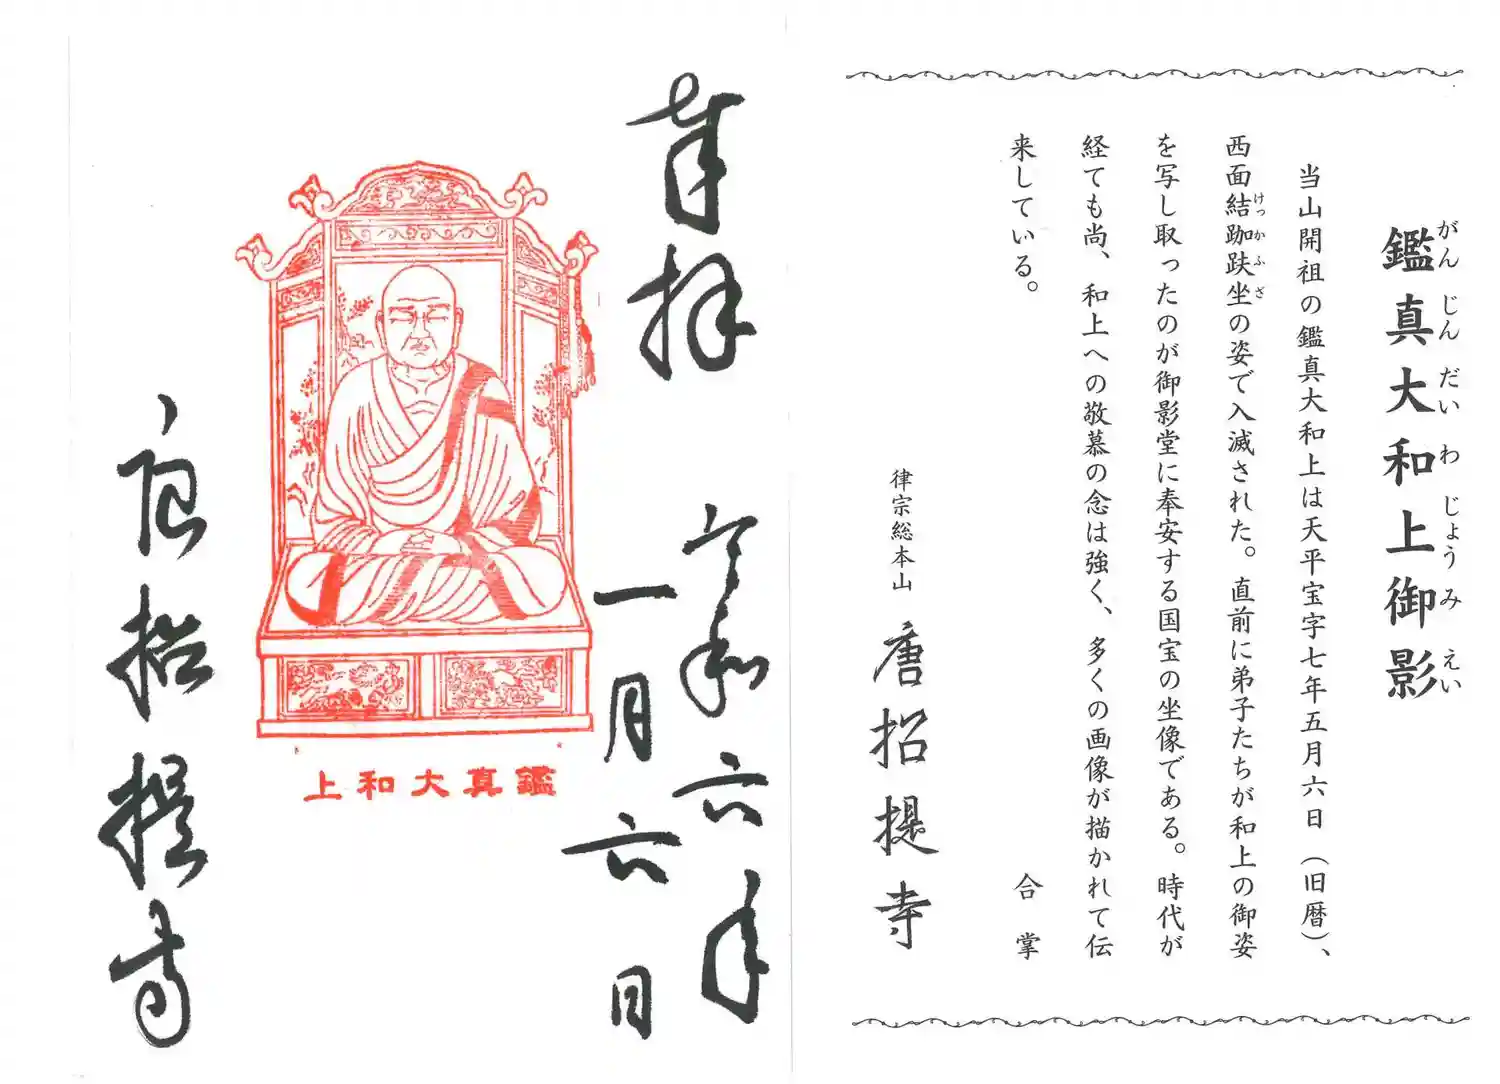 鑑真大和上御影
がんじんだいわじょうみえい
当山開祖の鑑真大和上は天平宝字七年五月六日（旧暦）、
西面結跏趺坐の姿で入滅された。直前に弟子たちが和上の御姿
けっかふざ
を写し取ったのが御影堂に奉安する国宝の坐像である。時代が
経ても尚、和上への敬慕の念は強く、多くの画像が描かれて伝
来している。
合掌
律宗総本山 唐招提寺
奉拝
令和六年
一月六日
鑑真大和上
唐招提寺